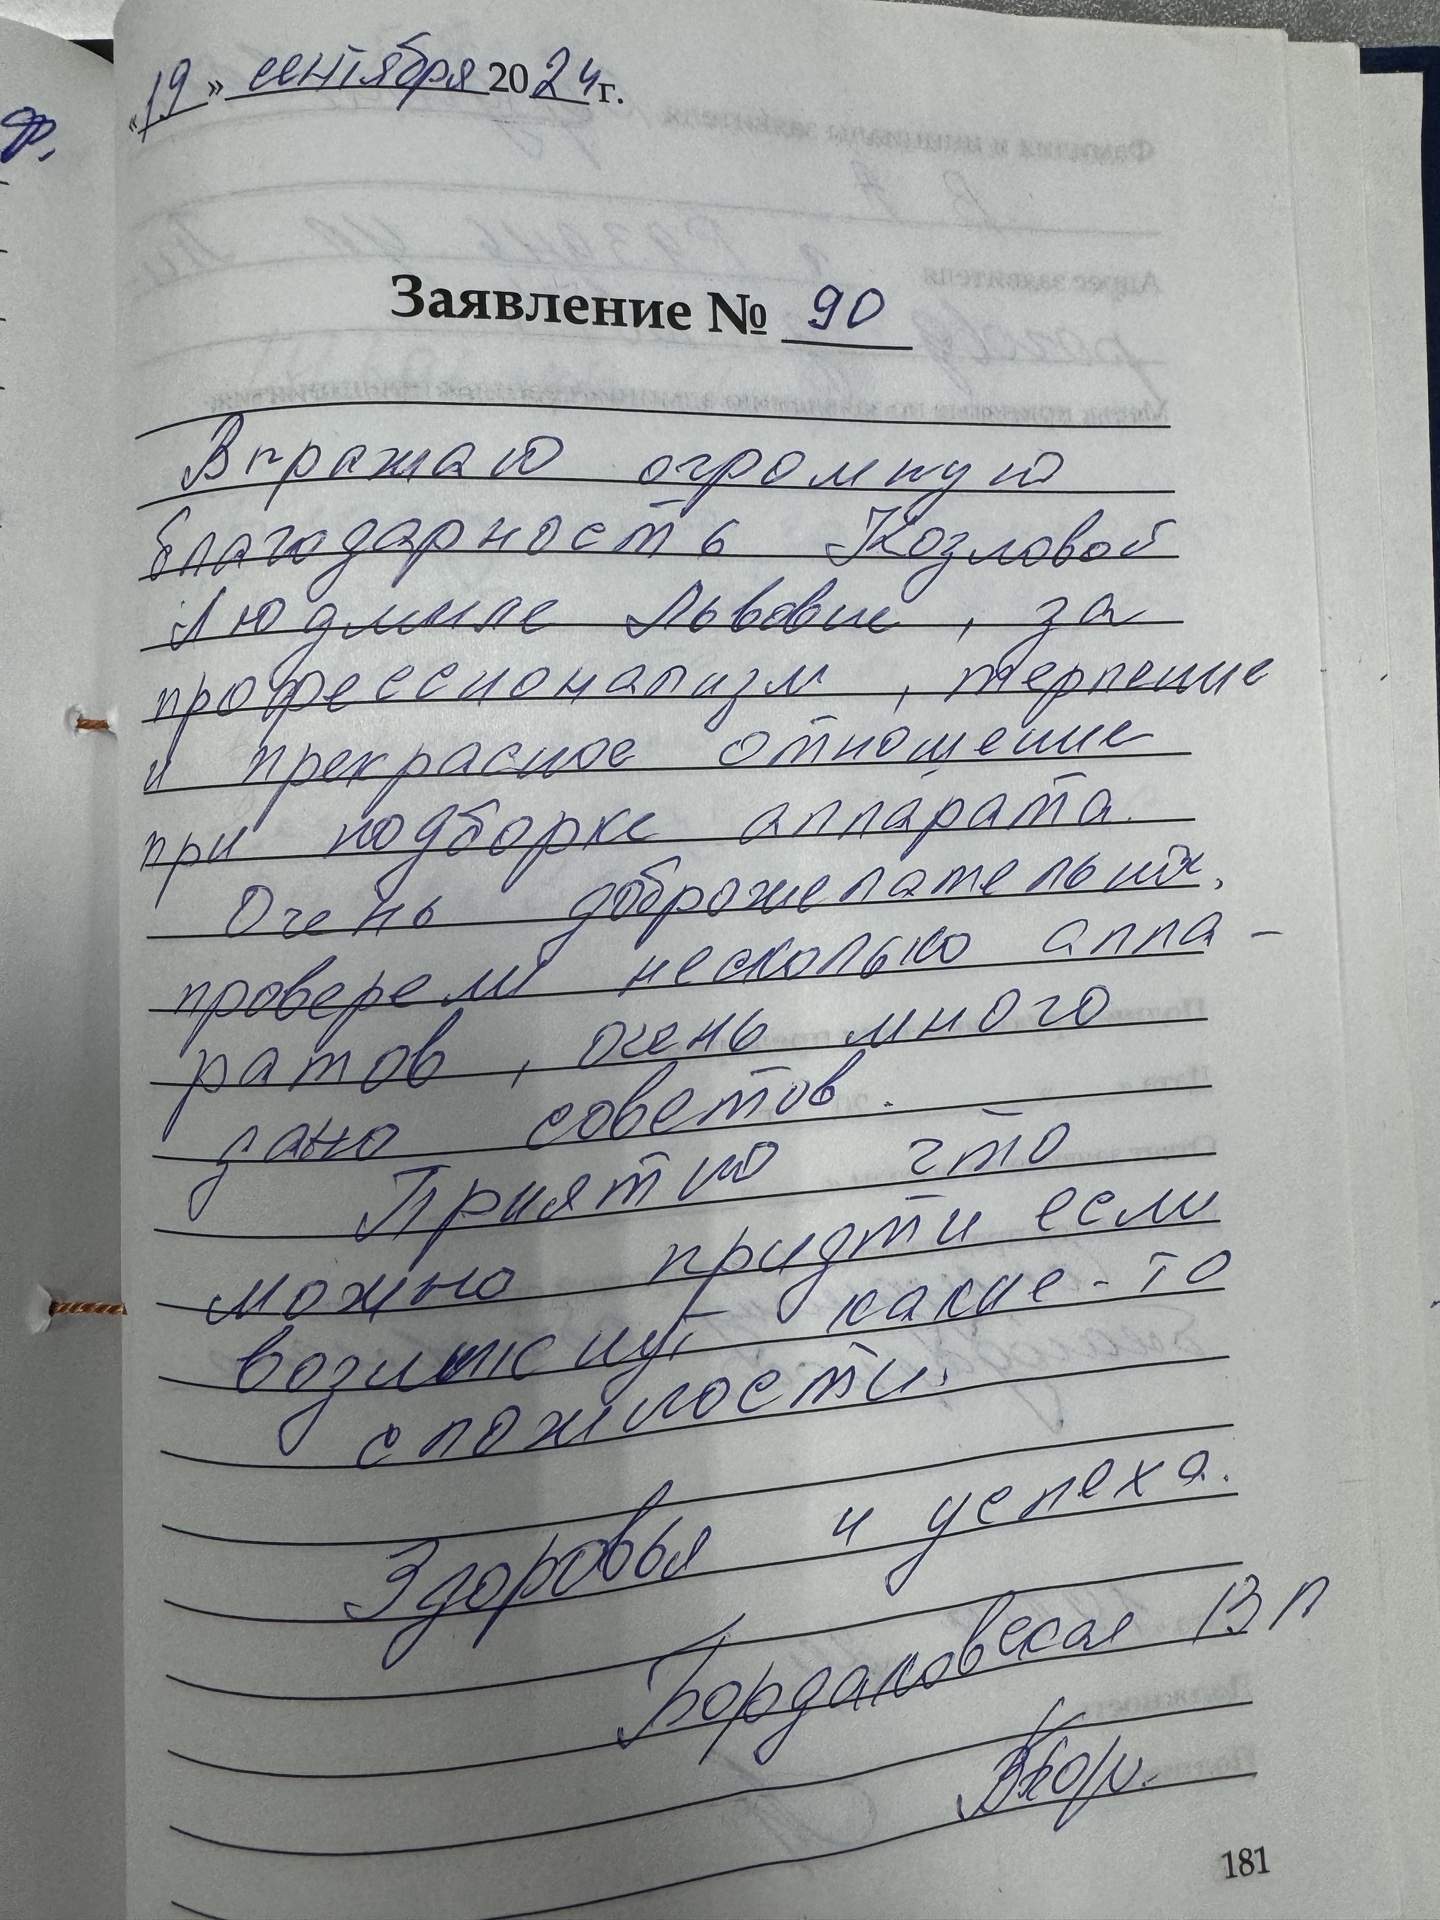 «19» сентября 2024 г.
Заявление № 90
Выражаю огромную
благодарность Козловой
Людмиле Львовне, за
профессионализм, терпение
и прекрасное отношение
при подборке аппарата.
Очень доброжелательны,
проверели несколько аппа-
ратов, очень много
дано советов.
Приятно что
можно придти если
возникнут какие-то
сложности.
Здоровья и успеха.
Бордаковская В П
181